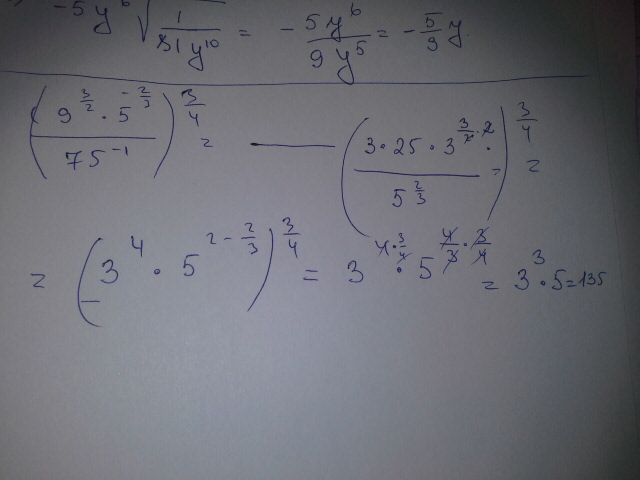 -5y^6 √(1/(81y^10)) = - 5y^6/(9y^5) = - 5/9 y.
((9^(3/2) · 5^(-2/3))/(75^(-1)))^(3/4) = —— ((3 · 25 · 3^(3/2 · 2))/(5^(2/3)))^(3/4) =
= (3^4 · 5^(2 - 2/3))^(3/4) = 3^(4 · 3/4) · 5^(4/3 · 3/4) = 3^3 · 5 = 135